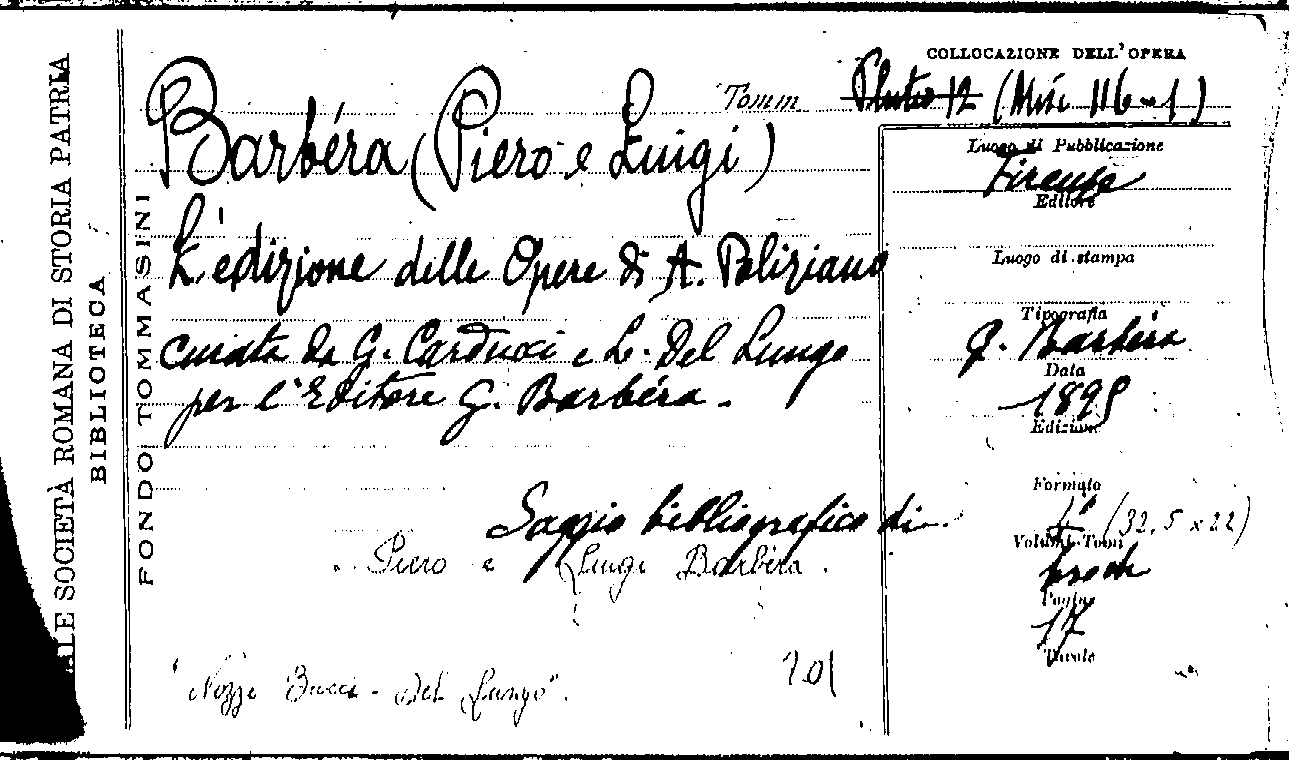 ALE SOCIETÀ ROMANA DI STORIA PATRIA
BIBLIOTECA
FONDO TOMMASINI
COLLOCAZIONE DELL'OPERA
Tomm Pluteo 12 (Misc 116-1)
Barbéra (Piero e Luigi)
L'edizione delle Opere di A. Poliziano
curata da G. Carducci e L. Del Lungo
per l'Editore G. Barbéra.
Saggio bibliografico di
Piero e Luigi Barbèra.
"Nozze Bacci - Del Lungo".
201
Luogo di Pubblicazione
Firenze
Editore
Luogo di stampa
Tipografia
G. Barbéra
Data
1895
Edizione
Formato
4° (32,5 x 22)
Volumi-Tomi
broch
Pagine
17
Tavole